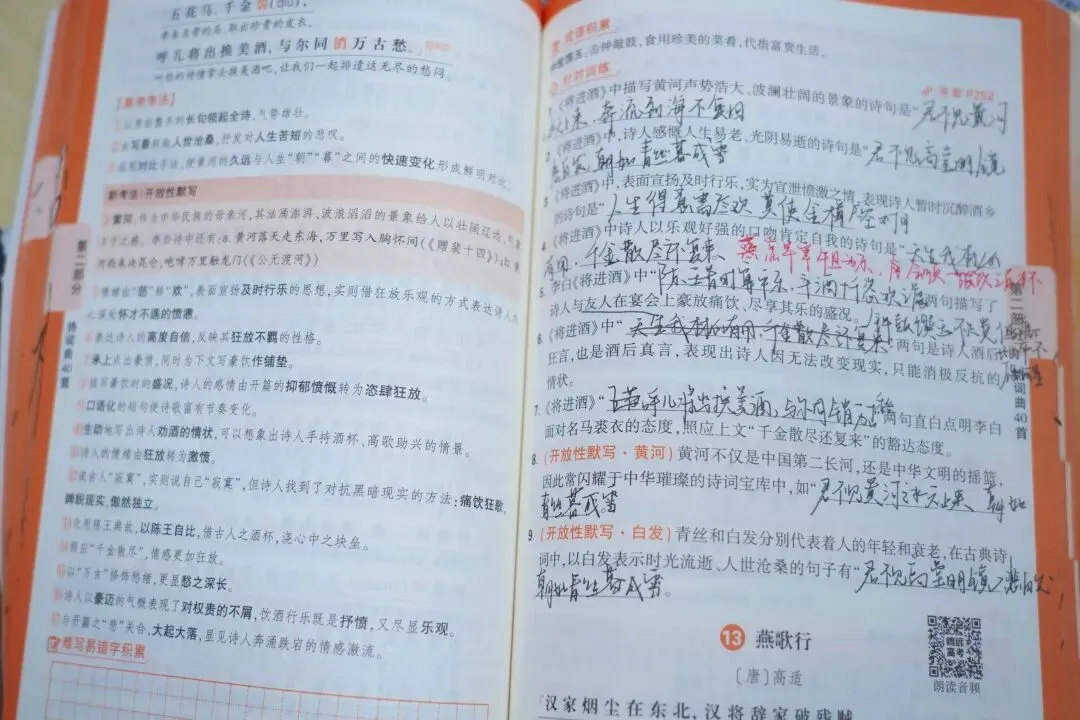 五花马、千金裘(qiú)，
名贵的皮衣。
呼儿将出换美酒，与尔同销万古愁。
叫你的侍儿拿去换美酒吧，让我们一起排遣这无尽的愁闷。
【高考考法】
长句领起全诗，气势雄壮。
人世沧桑，抒发对人生苦短的悲叹。
对比手法，使黄河的久远与人生“朝”“暮”之间的快速变化形成鲜明对比。
新考法|开放性默写
黄河，作为中华民族的母亲河，其汹涌澎湃、波浪滔滔的景象给人以壮阔辽远、气象
万千之感。李白诗中还有：a.黄河落天走东海，万里写入胸怀间(《赠裴十四》)；b.黄
河西来决昆仑，咆哮万里触龙门(《公无渡河》)
“悲”转“欢”，表面宣扬及时行乐的思想，实则借狂放乐观的方式表达诗人内
心深处怀才不遇的愤懑。
表达诗人的高度自信，反映其狂放不羁的性格。
承上点出豪情，同时为下文写豪饮作铺垫。
描写豪饮时的盛况，诗人的感情由开篇的抑郁愤慨转为恣肆狂放。
口语化的短句使诗歌富有节奏变化。
生动地写出诗人劝酒的情状，可以想象出诗人手持酒杯、高歌助兴的情景。
诗人的情绪由狂放转为激愤。
说古人“寂寞”，实则说自己“寂寞”，但诗人找到了对抗黑暗现实的方法：痛饮狂歌，
睥睨现实，傲然独立。
化用陈王典故，以陈王自比，借古人之酒杯，浇心中之块垒。
照应“千金散尽”，情感更加狂放。
以“万古”修饰愁绪，更显愁之深长。
诗人以豪迈的气概表现了对权贵的不屑，饮酒行乐既是抒愤，又尽显乐观。
与开篇之“悲”关合，大起大落，显见诗人奔涌跌宕的情感激流。
难写易错字积累
第二部分
诗词曲40篇
成语积累
钟鼓馔玉：击钟敲鼓，食用珍美的菜肴，代指富贵生活。
针对训练
答案 P252
1.《将进酒》中描写黄河声势浩大、波澜壮阔的景象的诗句是“君不见黄河
天上来，奔流到海不复回
2.《将进酒》中，诗人感慨人生易老、光阴易逝的诗句是“君不见高堂明镜
悲白发，朝如青丝暮成雪
3.《将进酒》中，表面宣扬及时行乐，实为宣泄愤激之情，表现诗人暂时沉醉酒乡
的诗句是“人生得意须尽欢 莫使金樽空对月
4.《将进酒》中诗人以乐观好强的口吻肯定自我的诗句是“天生我材必
有用，千金散尽还复来
5.李白《将进酒》中“陈王昔时宴平乐，斗酒十千恣欢谑两句描写了
诗人与友人在宴会上豪放痛饮、尽享其乐的盛况。
6.《将进酒》中“天生我材必有用 千金散尽还复来 钟鼓馔玉不足贵 两句是诗人酒后
狂言，也是酒后真言，表现出诗人因无法改变现实，只能消极反抗的
情状。
7.《将进酒》“五花马 呼儿将出换美酒，与尔同销万古愁两句直白点明李白
面对名马裘衣的态度，照应上文“千金散尽还复来”的豁达态度。
8.(开放性默写·黄河)黄河不仅是中国第二长河，还是中华文明的摇篮，
因此常闪耀于中华璀璨的诗词宝库中，如“君不见黄河之水天上来 朝如
青丝暮成雪
9.(开放性默写·白发)青丝和白发分别代表着人的年轻和衰老，在古典诗
词中，以白发表示时光流逝、人世沧桑的句子有“君不见高堂明镜悲白发
朝如青丝暮成雪。
第二部
词曲40首
13 燕歌行
〔唐〕高适
腾远高考
朗读音频
汉家烟尘在东北，汉将辞家破残贼